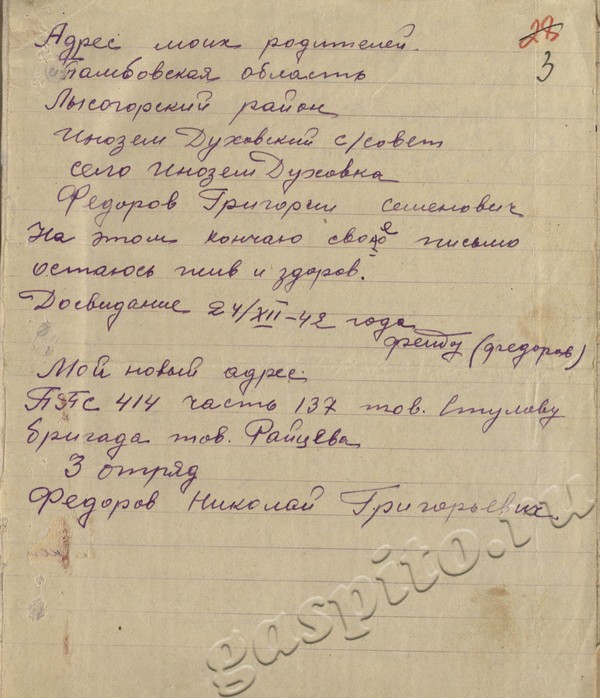 28
3
Адрес моих родителей.
Тамбовская область
Лысогорский район
Инозем Духовский с/совет
село Инозем Духовка
Федоров Григории семенович
На этом кончаю свое письмо
остаюсь жив и здоров.
Досвидание 24/XII-42 года
(федоров)
Мой новый адрес.
ППС 414 часть 137 тов. Стулову
бригада тов. Райцева
3 отряд
Федоров Николай Григорьевич.
gaspito.ru